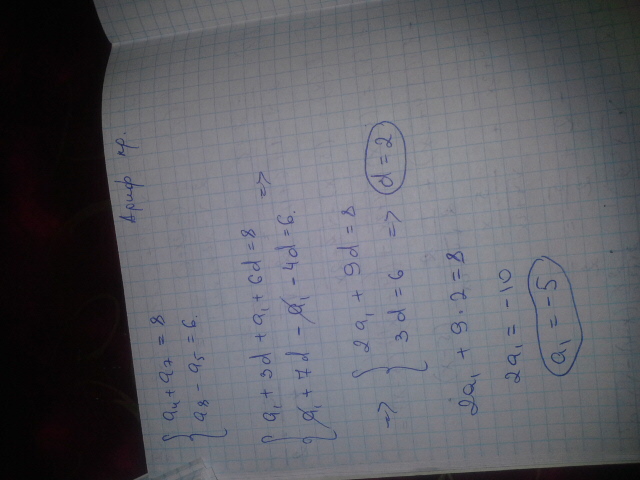 Ариф пр.
{ a₄ + a₇ = 8
a₈ - a₅ = 6.
{ a₁ + 3d + a₁ + 6d = 8 =>
a₁ + 7d - a₁ - 4d = 6.
=> { 2a₁ + 9d = 8
3d = 6 => d = 2
2a₁ + 9·2 = 8
2a₁ = -10
a₁ = -5